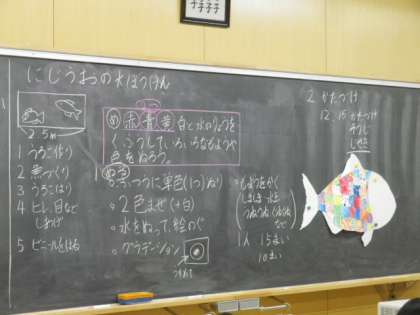 にじうおの水ぼうけん
2.5m
1 うろこ作り
2 魚づくり
3 うろこはり
4 ヒレ、目など
しあげ
5 ビニールをはる
め 赤 青 黄 白と水のりょうを
くふうしていろいろなもようや
色をぬろう。
ぬる
○ふつうに単色(1つ)ぬり
○2色まぜ(+白)
○水をぬって、絵のぐ
○グラデーション
○もようをかく
しましま 水玉
など
1人 15まい
10まい
2 かたづけ
12,15 かたづけ
そうじ